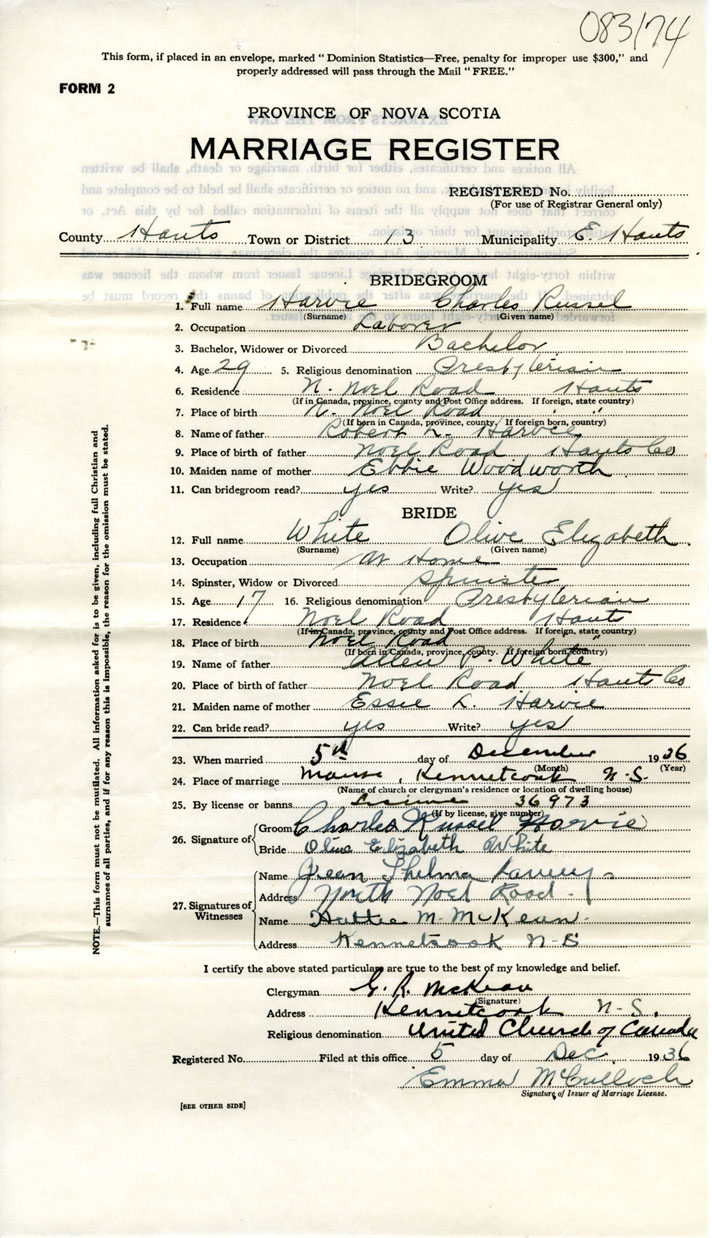 083/74
This form, if placed in an envelope, marked "Dominion Statistics—Free, penalty for improper use $300," and
properly addressed will pass through the Mail "FREE."
FORM 2
PROVINCE OF NOVA SCOTIA
MARRIAGE REGISTER
REGISTERED No.
(For use of Registrar General only)
County Hants Town or District 13 Municipality E. Hants
BRIDEGROOM
1. Full name Harvie Charles Russel
(Surname) (Given name)
2. Occupation Laborer
3. Bachelor, Widower or Divorced Bachelor
4. Age 29 5. Religious denomination Presbyterian
6. Residence N. Noel Road Hants
(If in Canada, province, county and Post Office address. If foreign, state country)
7. Place of birth N. Noel Road " "
(If born in Canada, province, county. If foreign born, country)
8. Name of father Robert L. Harvie
9. Place of birth of father Noel Road Hants Co
10. Maiden name of mother Ebbie Woodworth
11. Can bridegroom read? yes Write? yes
BRIDE
12. Full name White Olive Elizabeth
(Surname) (Given name)
13. Occupation At Home
14. Spinster, Widow or Divorced Spinster
15. Age 17 16. Religious denomination Presbyterian
17. Residence Noel Road Hants
(If in Canada, province, county and Post Office address. If foreign, state country)
18. Place of birth Noel Road " "
(If born in Canada, province, county. If foreign born, country)
19. Name of father Allen P. White
20. Place of birth of father Noel Road Hants Co
21. Maiden name of mother Essie L. Harvie
22. Can bride read? yes Write? yes
23. When married 5th day of December 1936
(Month) (Year)
24. Place of marriage Manse, Kennetcook N.S.
(Name of church or clergyman's residence or location of dwelling house)
25. By license or banns License 36973
(If by license, give number)
26. Signature of Groom Charles Russel Harvie
Bride Olive Elizabeth White
27. Signatures of Witnesses
Name Jean Thelma
Address North Noel Road
Name Hattie M. McKean
Address Kennetcook N-S
I certify the above stated particulars are true to the best of my knowledge and belief.
Clergyman G. R. McKean
(Signature)
Address Kennetcook N-S.
Religious denomination United Church of Canada
Registered No. Filed at this office 5 day of Dec 1936
Emma McCulloch
Signature of Issuer of Marriage License.
[SEE OTHER SIDE]
NOTE.—This form must not be mutilated. All information asked for is to be given, including full Christian and
surnames of all parties, and if for any reason this is impossible, the reason for the omission must be stated.